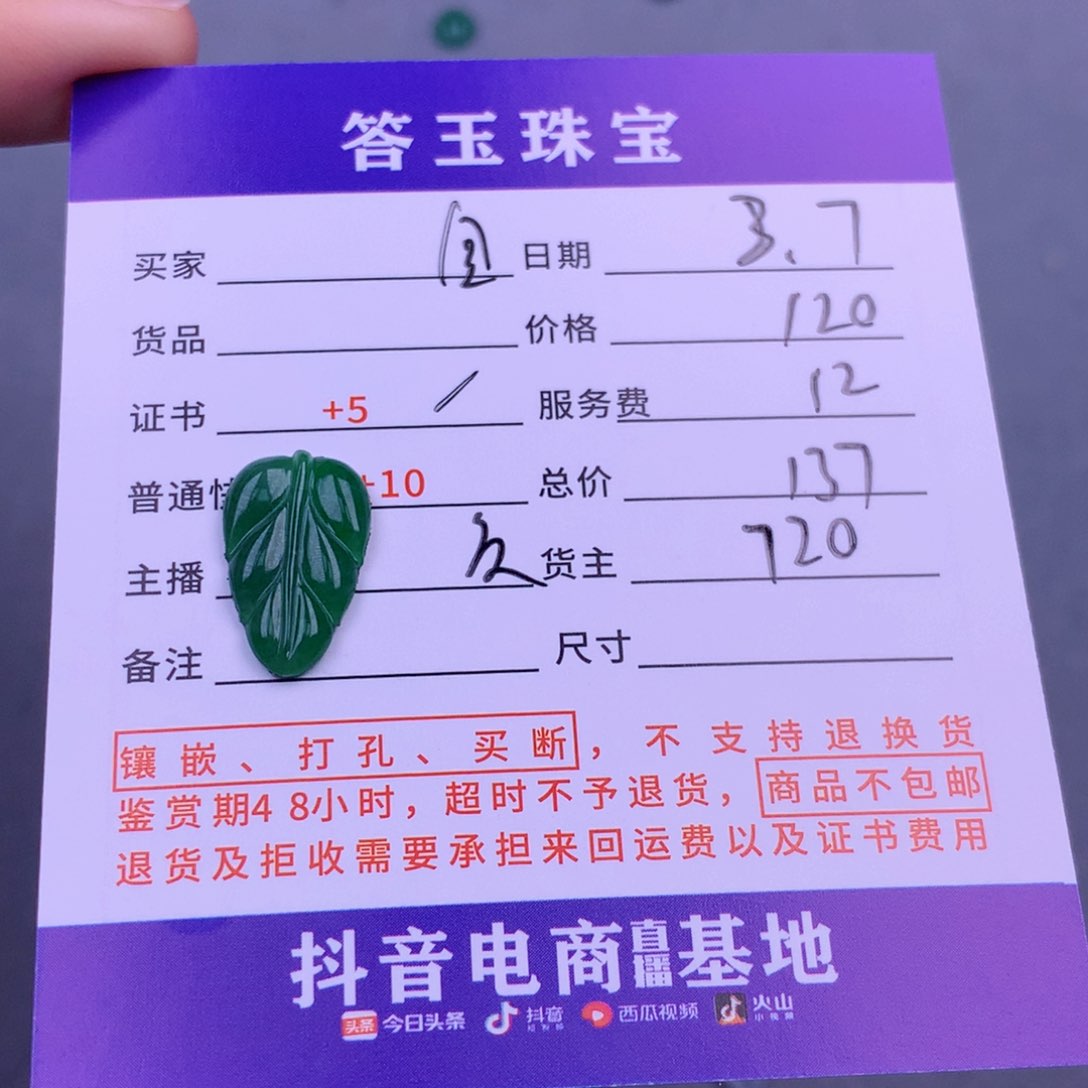 答玉珠宝
买家 日期 3.7
货品 价格 120
证书 +5 / 服务费 12
普通 +10 总价 137
主播 货主 720
备注 尺寸
镶嵌、打孔、买断，不支持退换货
鉴赏期48小时，超时不予退货，商品不包邮
退货及拒收需要承担来回运费以及证书费用
抖音电商直播基地
头条 今日头条 抖音 西瓜视频 火山